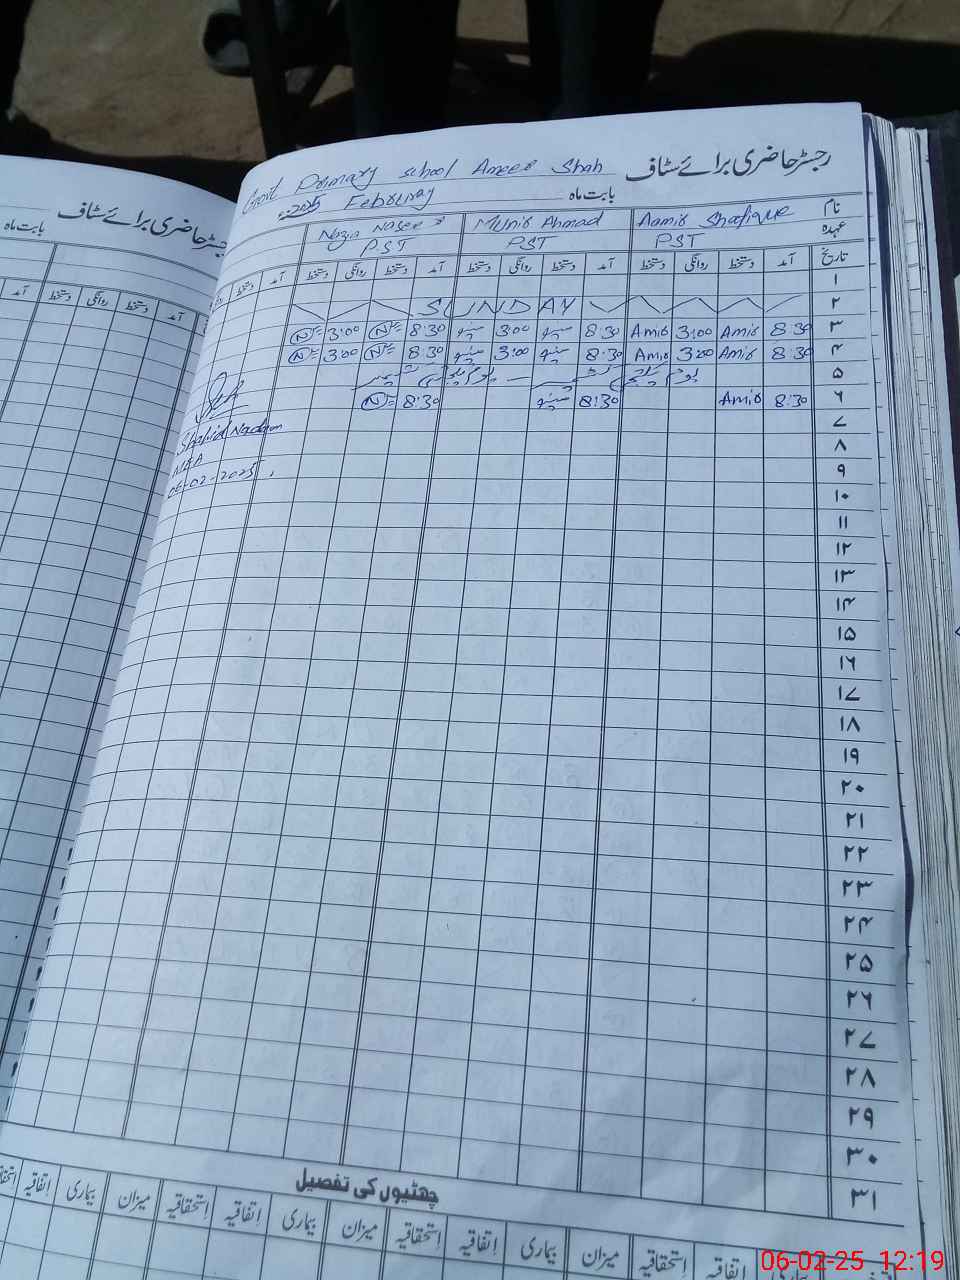 رجسٹر حاضری برائے سٹاف
Govt Primary school Ameer Shah
بابت ماہ February 2025
نام Aamir Shafique Munir Ahmad Nazia Naseer
عہدہ PST PST PST
تاریخ آمد دستخط روانگی دستخط آمد دستخط روانگی دستخط آمد دستخط روانگی دستخط آمد دستخط
۱
۲ SUNDAY
۳ 8:30 Amir 3:00 Amir 8:30 3:00 8:30 N 3:00 N
۴ 8:30 Amir 3:00 Amir 8:30 3:00 8:30 N 3:00 N
۵ یوم یکجہتی کشمیر یوم یکجہتی کشمیر
۶ 8:30 Amir 8:30 8:30 N
۷
۸
۹
۱۰
۱۱
۱۲
۱۳
۱۴
۱۵
۱۶
۱۷
۱۸
۱۹
۲۰
۲۱
۲۲
۲۳
۲۴
۲۵
۲۶
۲۷
۲۸
۲۹
۳۰
۳۱
Shahid Nadeem
MEA
06-02-2025
چھٹیوں کی تفصیل
اتفاقیہ استحقاقیہ میزان بیماری اتفاقیہ استحقاقیہ میزان بیماری اتفاقیہ استحقاقیہ میزان بیماری اتفاقیہ استحقاقیہ
رجسٹر حاضری برائے سٹاف
بابت ماہ
آمد دستخط روانگی دستخط آمد
06-02-25 12:19